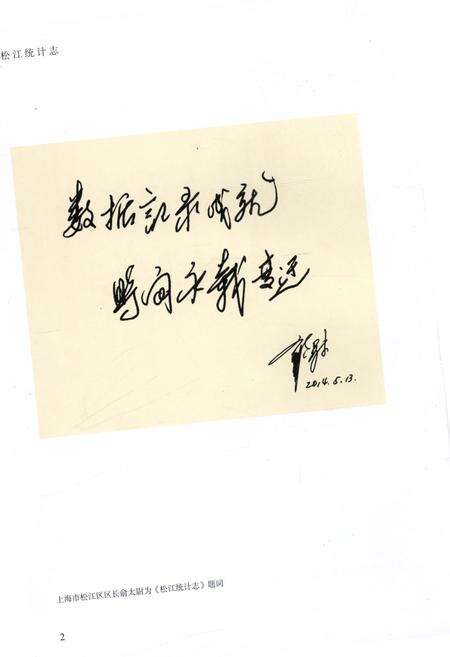 松江统计志
数据记录成就
时间永载变迁
2014.5.13.
上海市松江区区长俞太尉为《松江统计志》题词
2